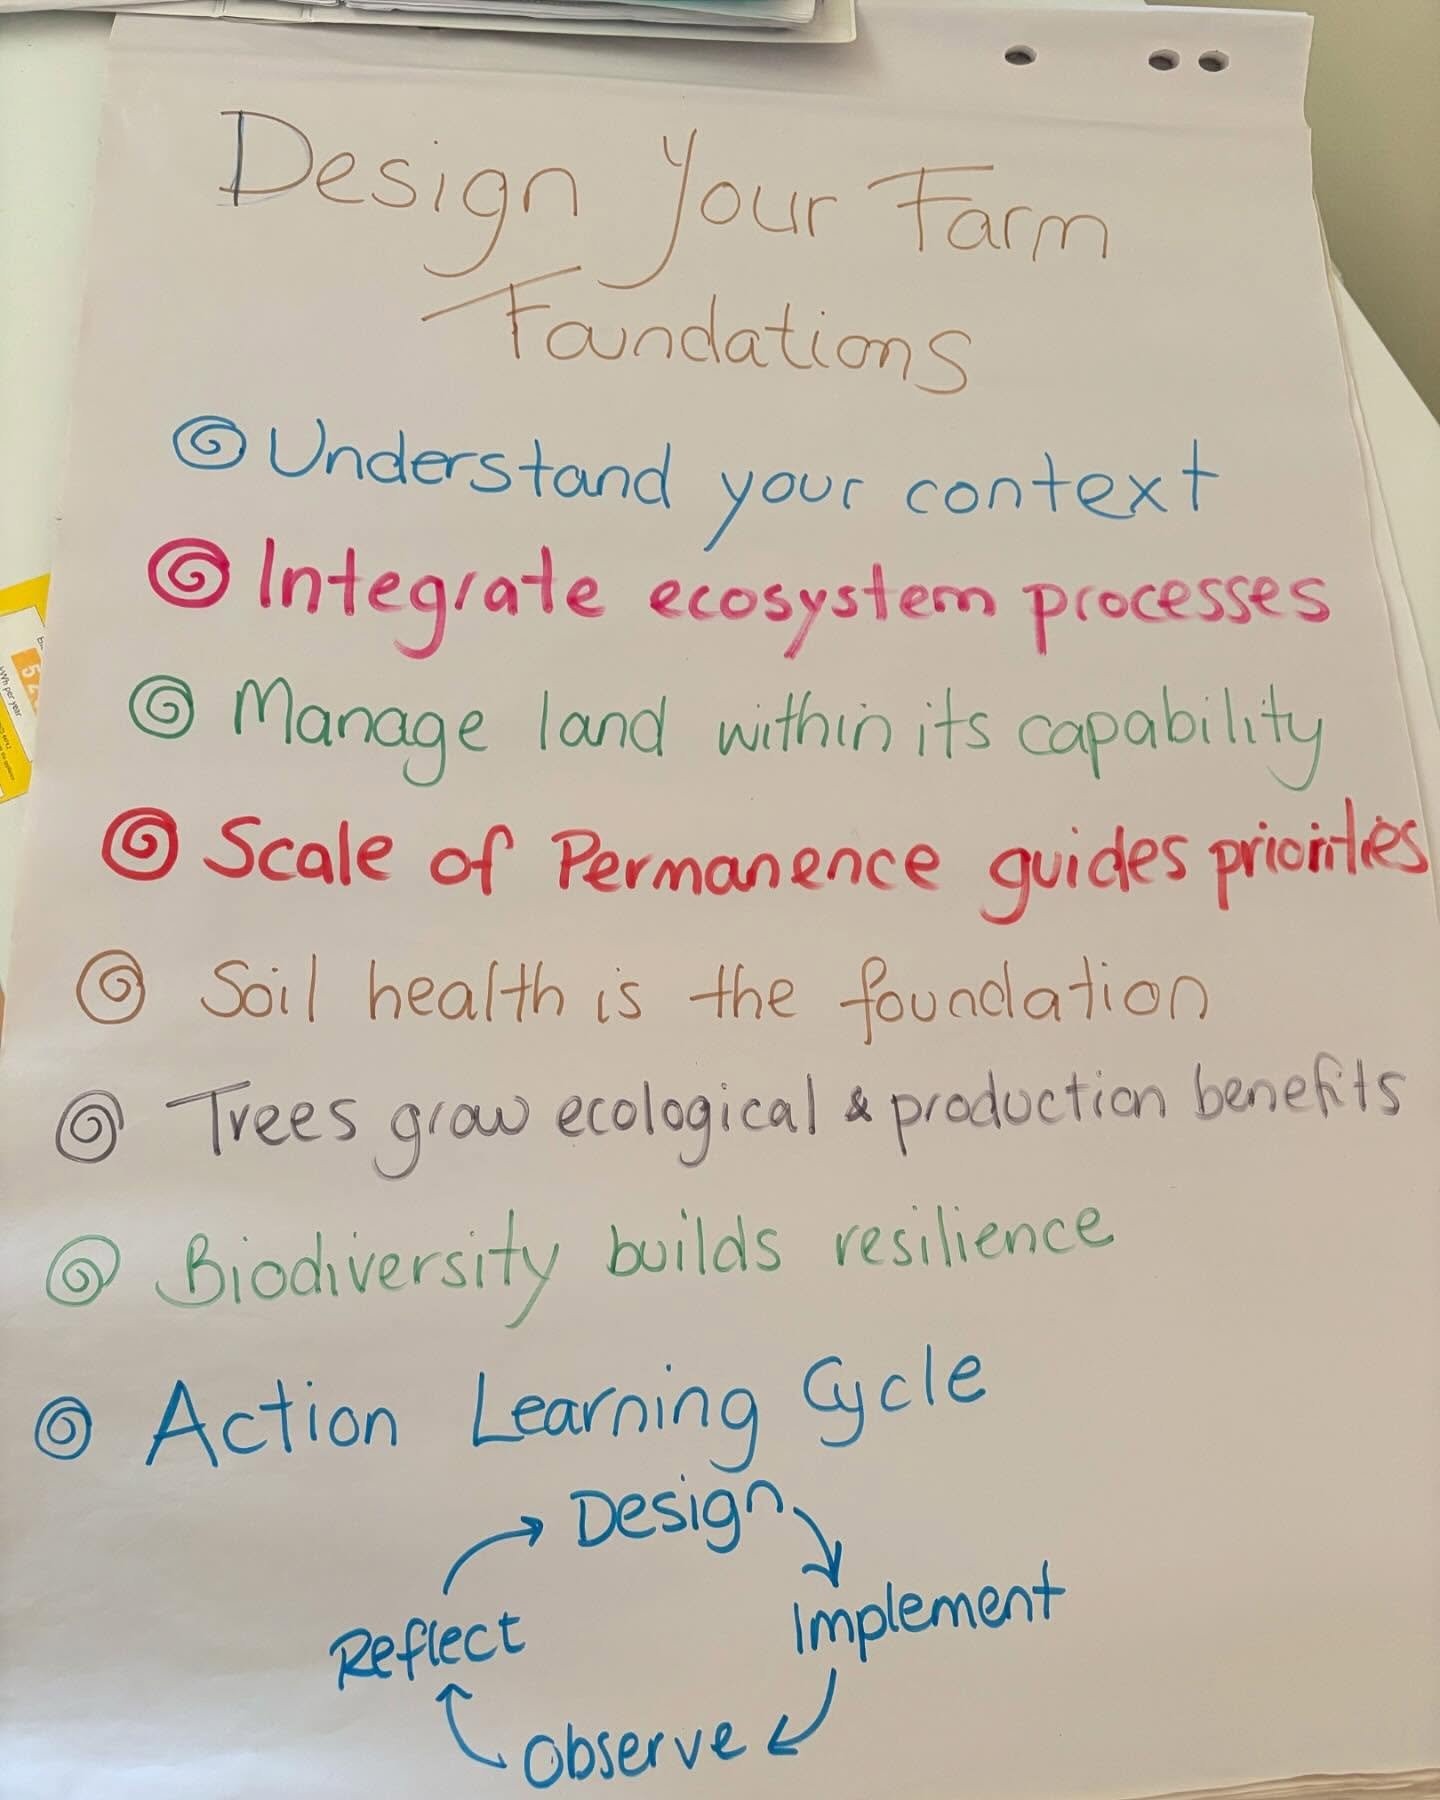 Design Your Farm
Foundations
Understand your context
Integrate ecosystem processes
Manage land within its capability
Scale of Permanence guides priorities
Soil health is the foundation
Trees grow ecological & production benefits
Biodiversity builds resilience
Action Learning Cycle
Design
Implement
Observe
Reflect
kWh per year